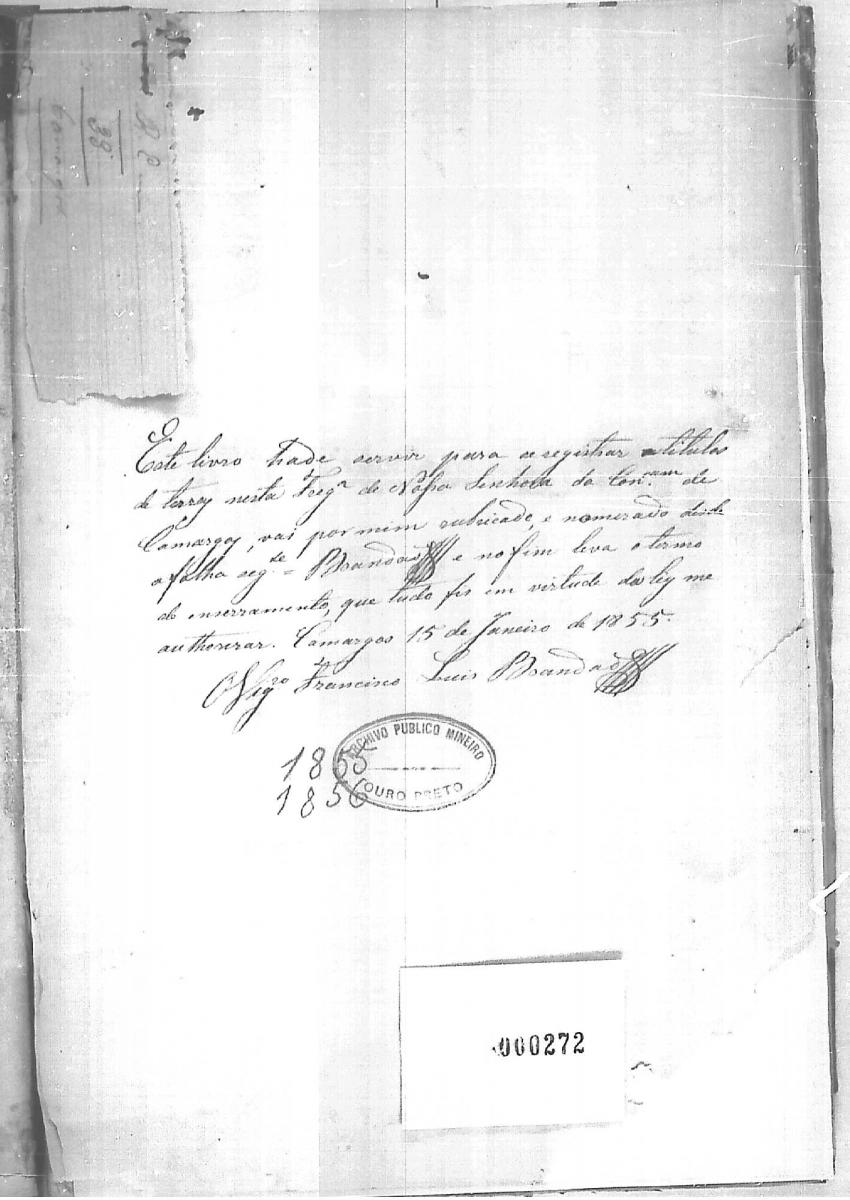 Este livro hade servir para se registrar os titulos
de terras nesta Freg.ª de Nossa Senhora da Con.cam de
Camargos, vai por mim rubricado, e nomerado desde
a folha seg.de = Brandaõ e no fim leva o termo
de enserramento, que tudo fis em virtude da ley me
authorizar. Camargos 15 de Janeiro de 1855.
O Vig.ro Francisco Luis Brandaõ
ARCHIVO PUBLICO MINEIRO
OURO PRETO
1855
1856
000272
38